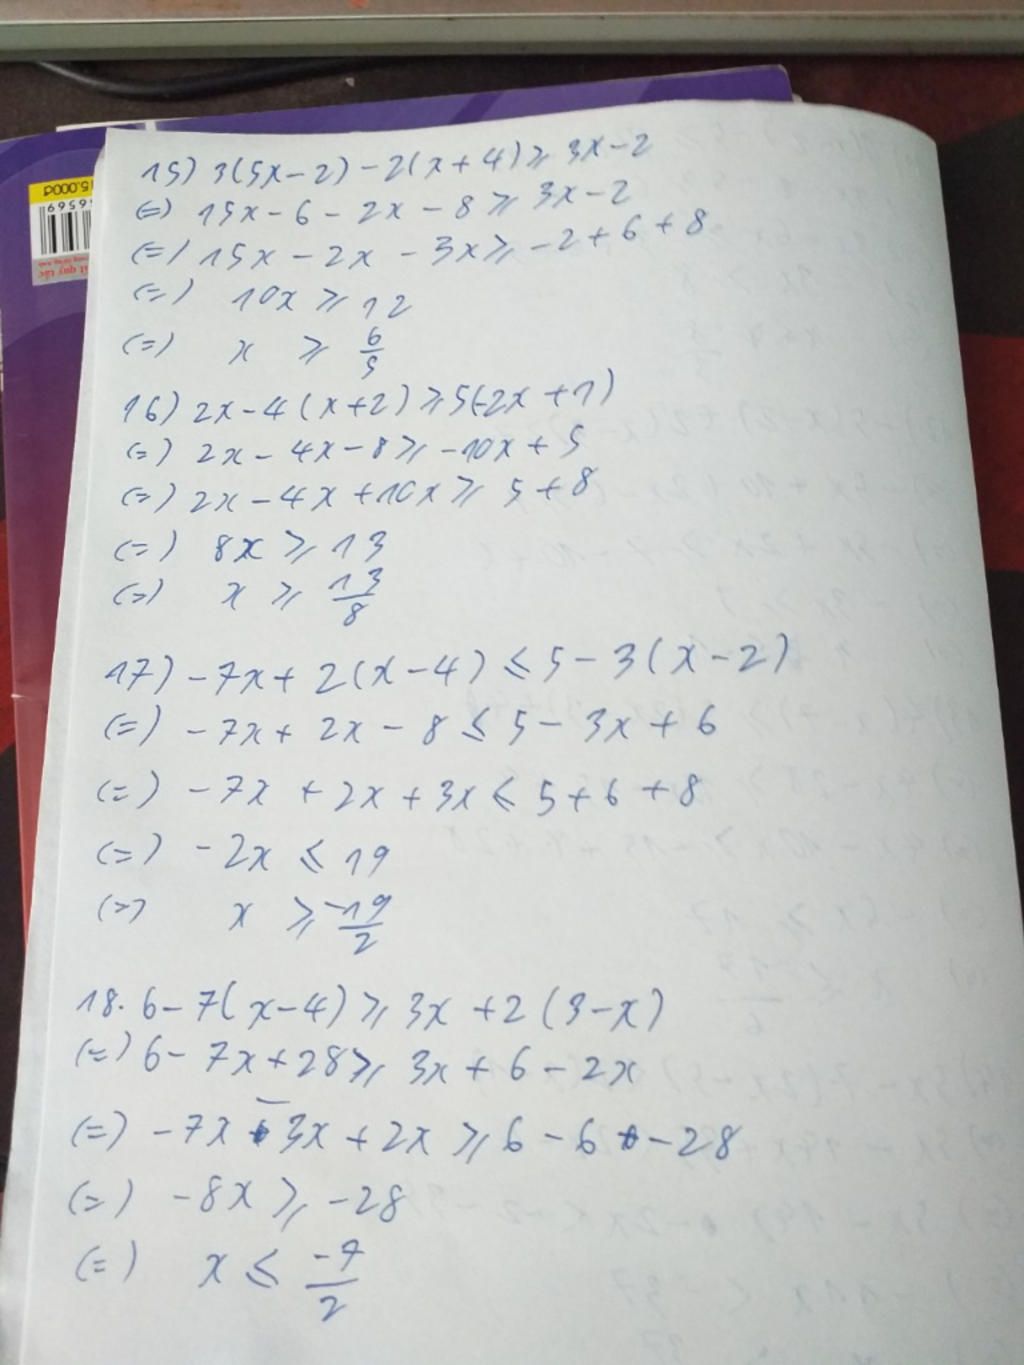 15.000đ
15) 3(5x-2)-2(x+4)≥3x-2
(=) 15x-6-2x-8≥3x-2
(=) 15x-2x-3x≥-2+6+8
(=) 10x≥12
(=) x ≥ 6/5
16) 2x-4(x+2)≥5(-2x+1)
(=) 2x-4x-8≥-10x+5
(=) 2x-4x+10x≥5+8
(=) 8x≥13
(=) x ≥ 13/8
17) -7x+2(x-4)≤5-3(x-2)
(=) -7x+2x-8≤5-3x+6
(=) -7x+2x+3x≤5+6+8
(=) -2x≤19
(=) x ≥ -19/2
18. 6-7(x-4)≥3x+2(3-x)
(=) 6-7x+28≥3x+6-2x
(=) -7x-3x+2x≥6-6-28
(=) -8x≥-28
(=) x ≤ -7/2